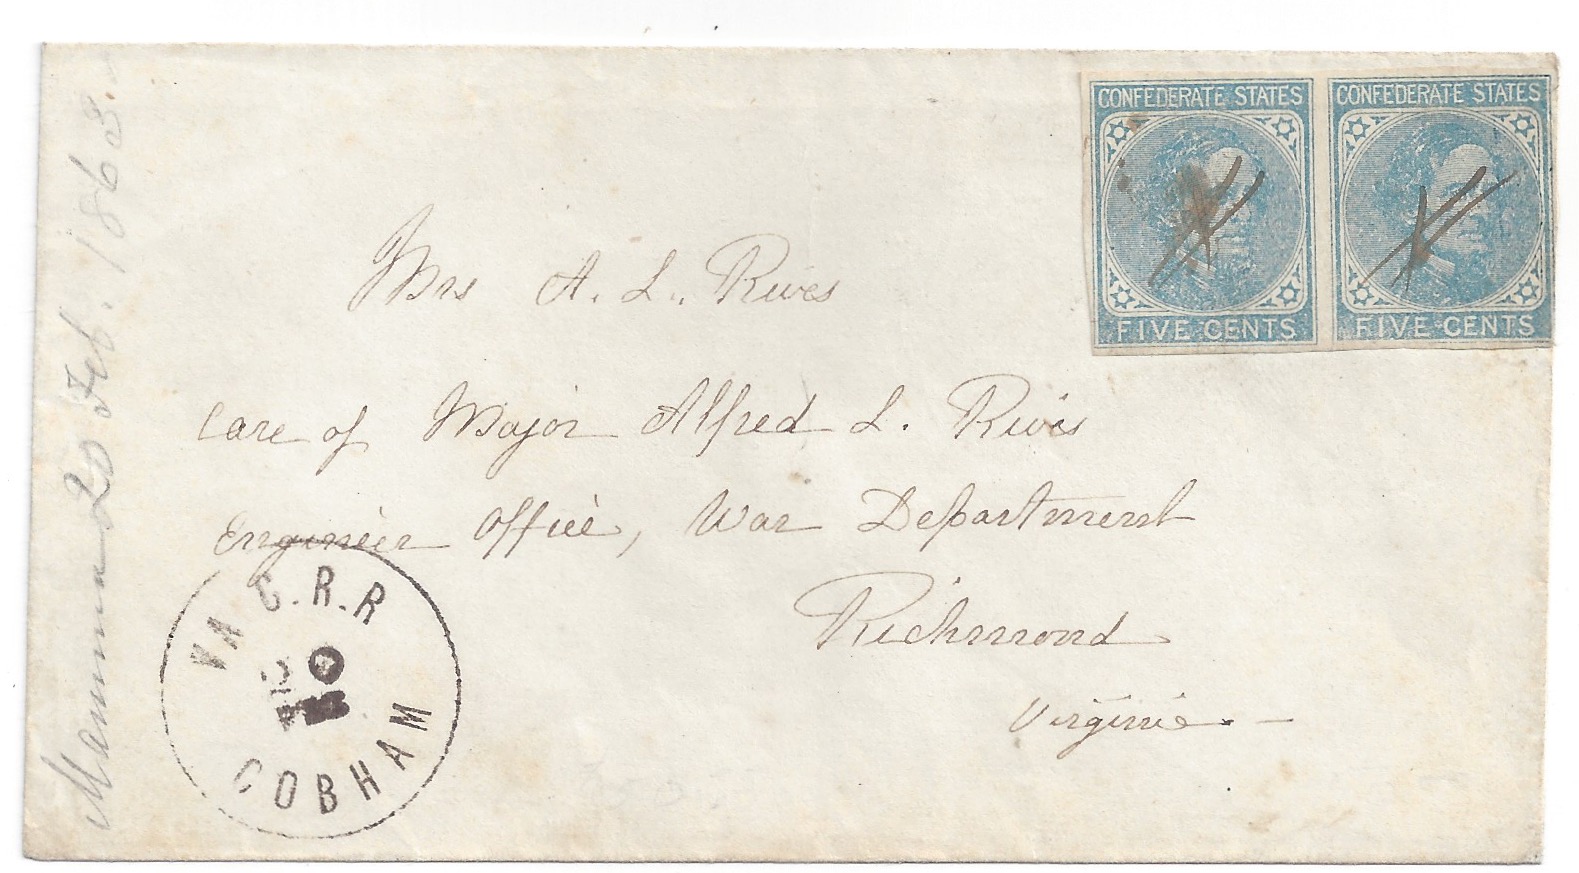 CONFEDERATE STATES
FIVE CENTS
CONFEDERATE STATES
FIVE CENTS
Mrs A. L. Rives
Care of Major Alfred L. Rives
Engineer Office, War Department
Richmond
Virginia
VA C.R.R
20
COBHAM
Mamma 20 Feb. 1863.